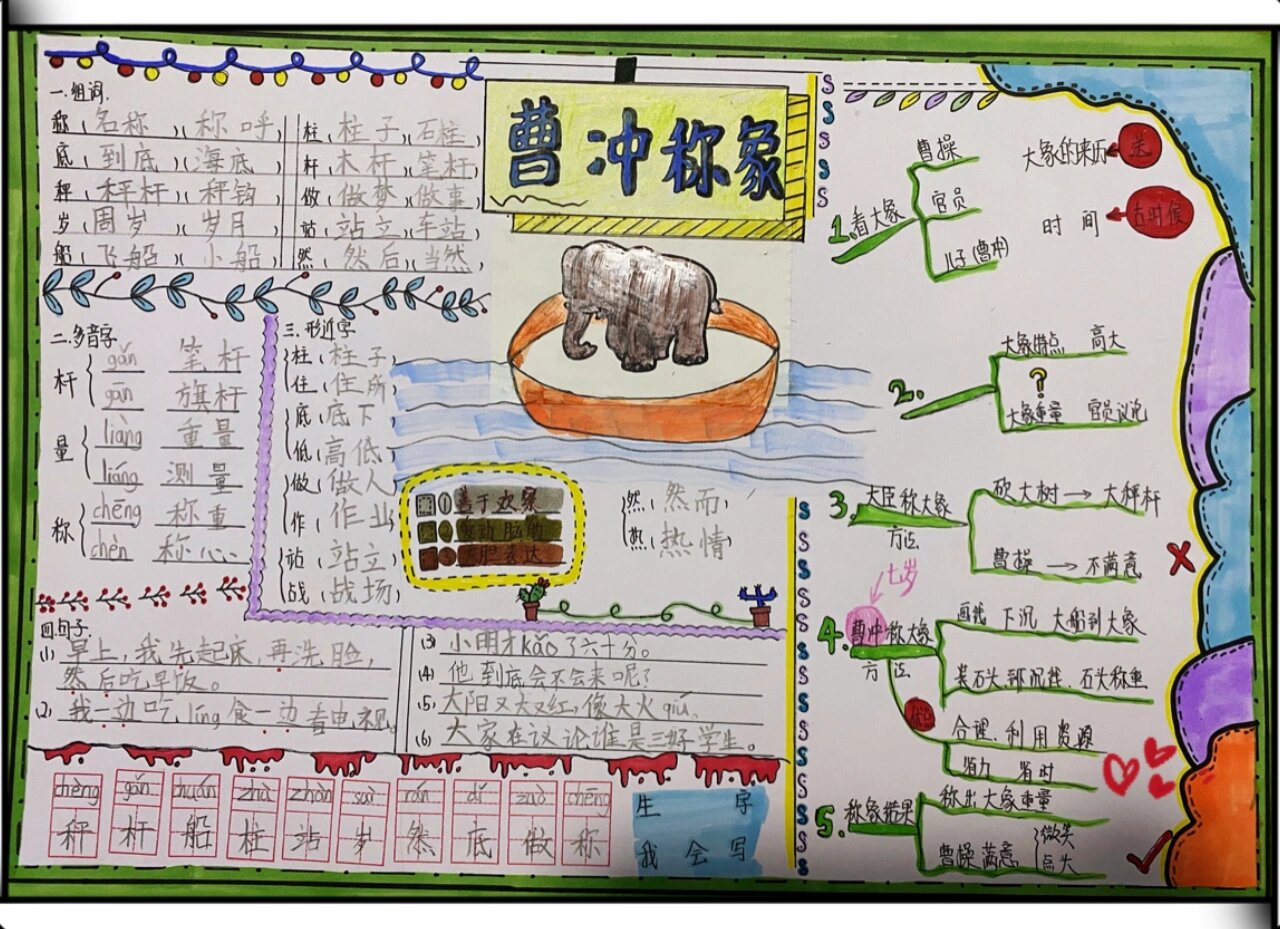 曹冲称象
一.组词.
称(名称)(称呼)
底(到底)(海底)
秤(秤杆)(秤钩)
岁(周岁)(岁月)
船(飞船)(小船)
柱(柱子)(石柱)
杆(木杆)(笔杆)
做(做梦)(做事)
站(站立)(车站)
然(然后)(当然)
二.多音字
杆
gǎn 笔杆
gān 旗杆
量
liàng 重量
liáng 测量
称
chēng 称重
chèn 称心
三.形近字
柱(柱子)
住(住所)
底(底下)
低(高低)
做(做人)
作(作业)
站(站立)
战(战场)
然(然而)
热(热情)
①善于观察
②爱动脑筋
③大胆表达
四.句子.
(1) 早上,我先起床,再洗脸,
然后吃早饭。
(2) 我一边吃líng食一边看电视。
(3) 小明才kǎo了六十分。
(4) 他到底会不会来呢?
(5) 太阳又大又红,像大火qiú.
(6) 大家在议论谁是三好学生。
chèng gǎn chuán zhù zhàn suì rán dǐ zuò chēng
秤 杆 船 柱 站 岁 然 底 做 称
生字
我会写
1.看大象
曹操
官员
儿子(曹冲)
大象的来历 送
时间 古时候
2.
大象特点 高大
?
大象重量 官员议论
3.大臣称大象
方法
砍大树→大秤杆
曹操→不满意
七岁
4.曹冲称大象
方法
画线 下沉 大船到大象
装石头 到沉线 石头称重
优点
合理利用资源
省力 省时
5.称象结果
称出大象重量
曹操满意
微笑
点头